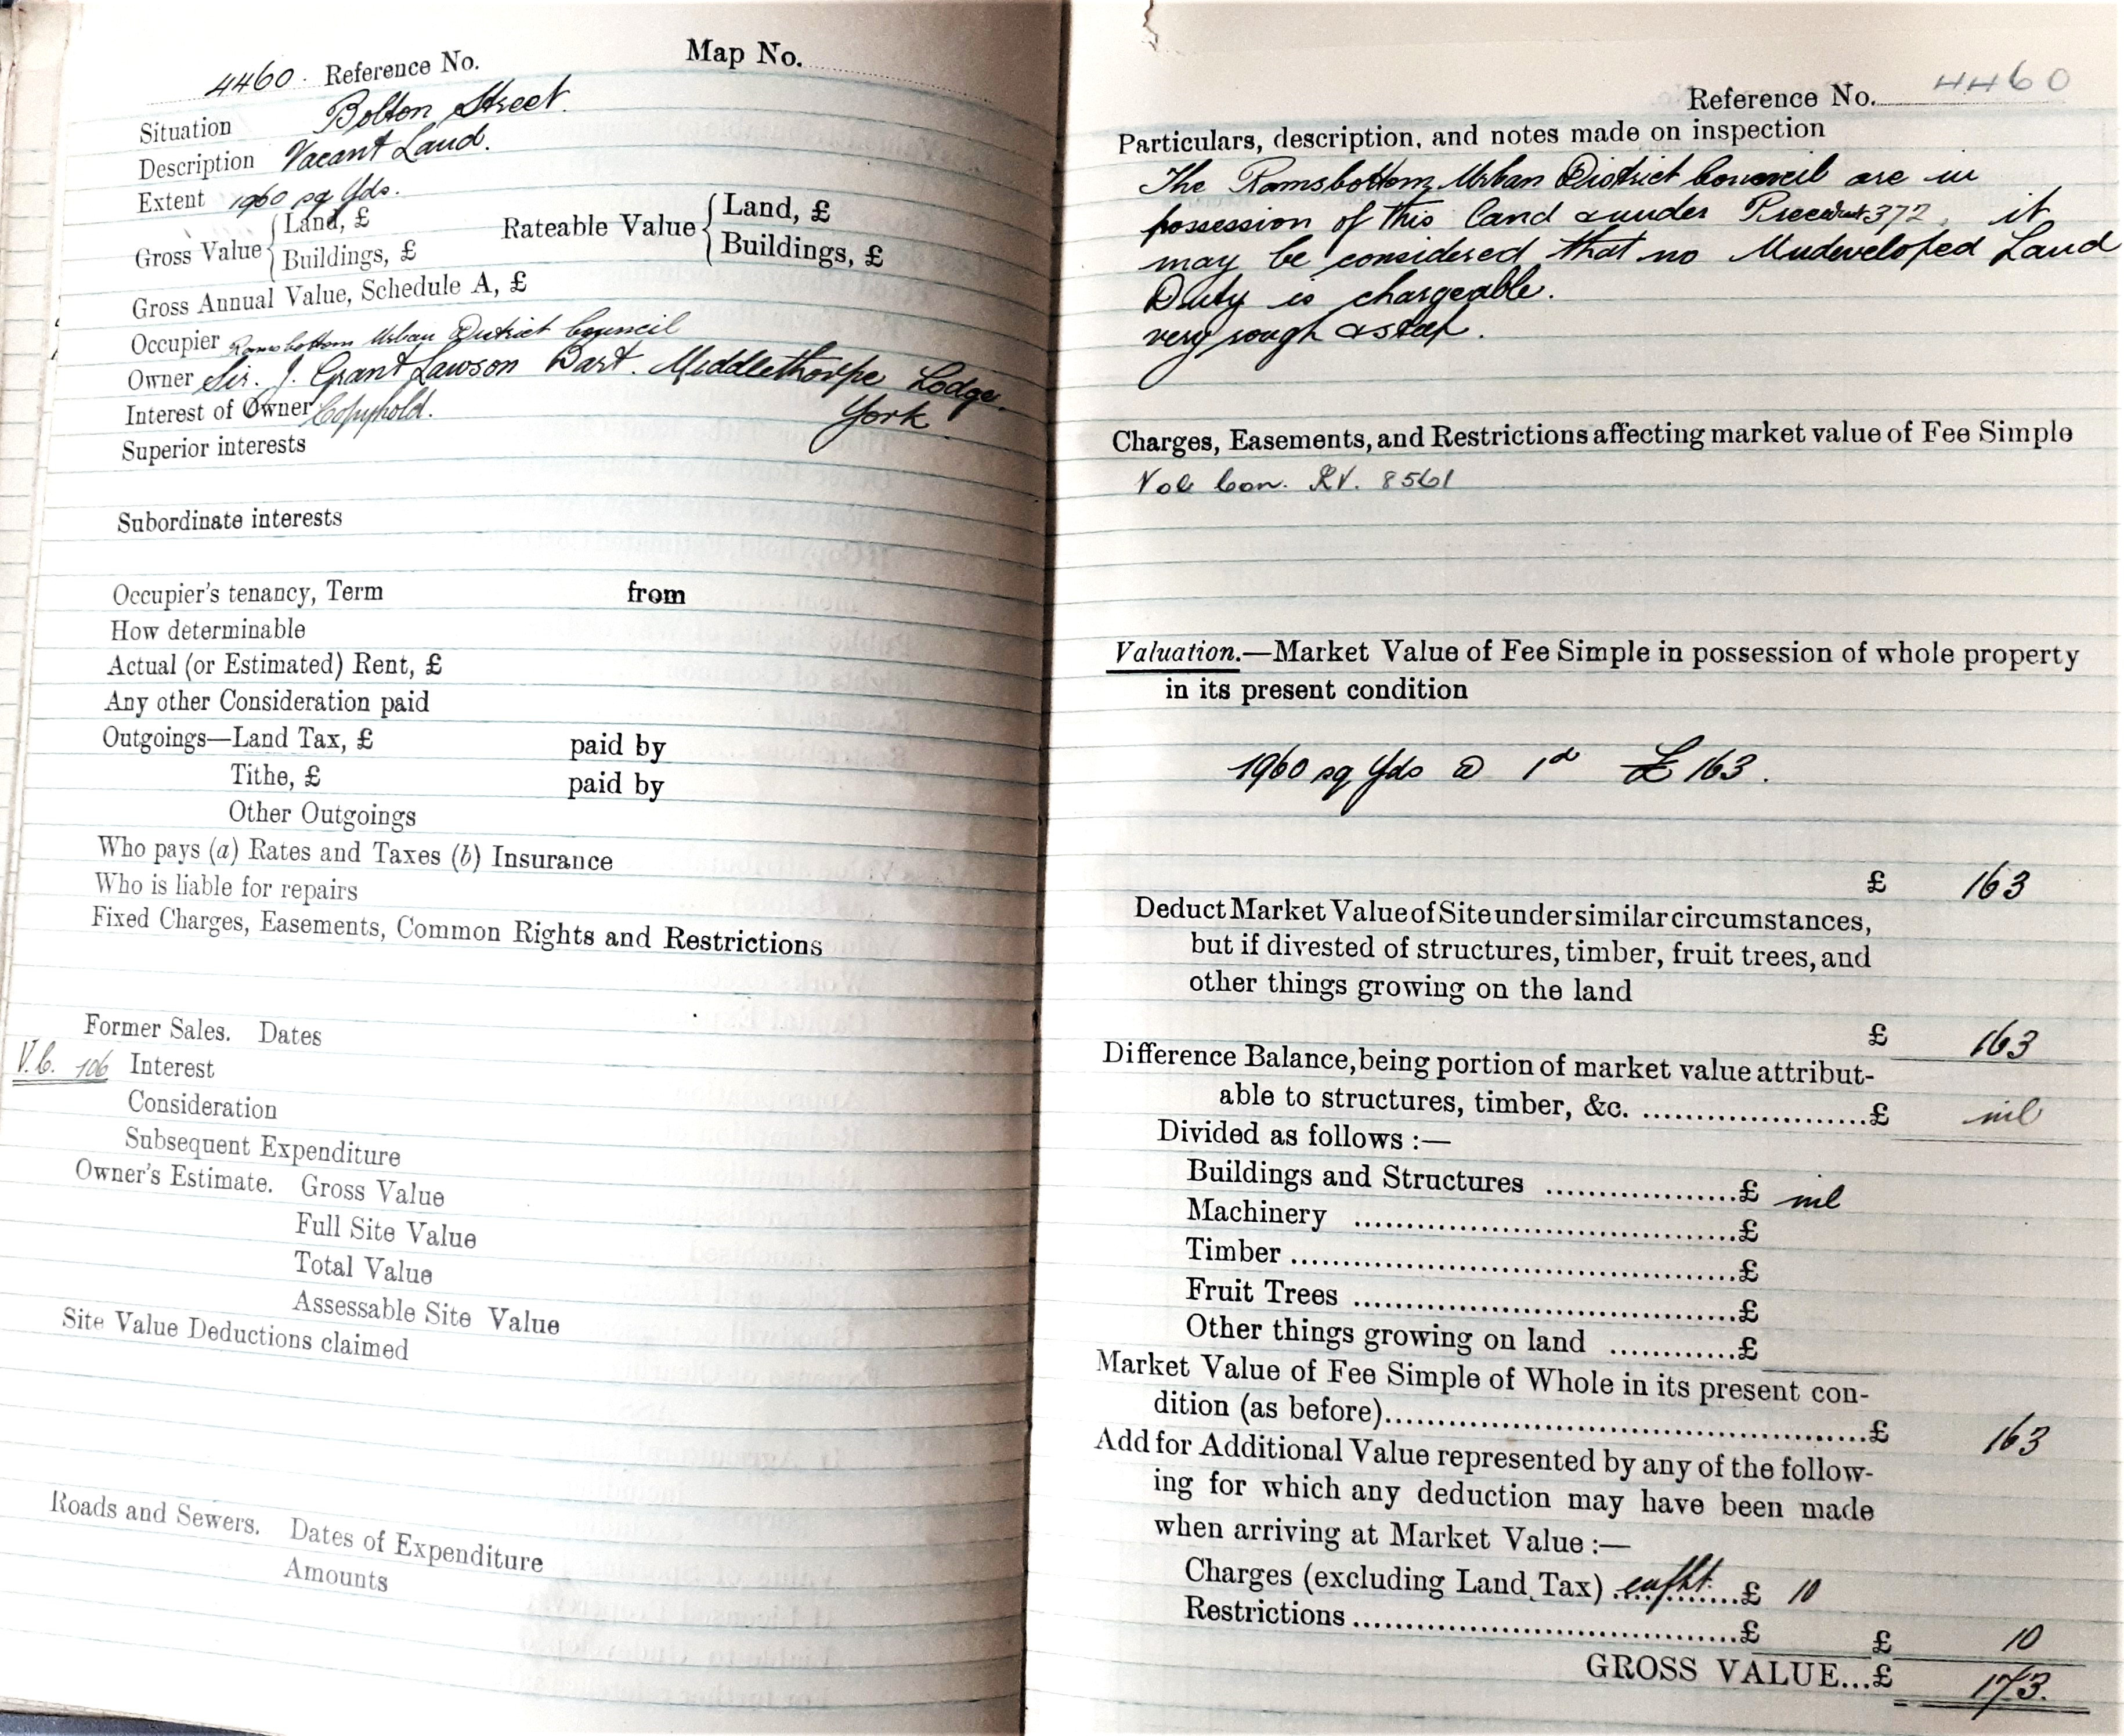 4460. Reference No. Map No.
Situation Bolton Street.
Description Vacant Land.
Extent 1960 sq Yds.
Gross Value { Land, £ Rateable Value { Land, £
Buildings, £ Buildings, £
Gross Annual Value, Schedule A, £
Occupier Ramsbottom Urban District Council
Owner Sir. J. Grant Lawson Bart. Middlethorpe Lodge,
Interest of Owner Copyhold. York
Superior interests
Subordinate interests
Occupier's tenancy, Term from
How determinable
Actual (or Estimated) Rent, £
Any other Consideration paid
Outgoings—Land Tax, £ paid by
Tithe, £ paid by
Other Outgoings
Who pays (a) Rates and Taxes (b) Insurance
Who is liable for repairs
Fixed Charges, Easements, Common Rights and Restrictions
Former Sales. Dates
V.C. 106 Interest
Consideration
Subsequent Expenditure
Owner's Estimate. Gross Value
Full Site Value
Total Value
Assessable Site Value
Site Value Deductions claimed
Roads and Sewers. Dates of Expenditure
Amounts
Reference No. 4460
Particulars, description, and notes made on inspection
The Ramsbottom Urban District Council are in
possession of this land & under 372, it
may be considered that no Undeveloped Land
Duty is chargeable.
very rough & steep.
Charges, Easements, and Restrictions affecting market value of Fee Simple
8561
Valuation.—Market Value of Fee Simple in possession of whole property
in its present condition
1960 sq Yds @ 1d £163.
£ 163
Deduct Market Value of Site under similar circumstances,
but if divested of structures, timber, fruit trees, and
other things growing on the land
£ 163
Difference Balance, being portion of market value attribut-
able to structures, timber, &c. ....................£ nil
Divided as follows :—
Buildings and Structures ..................£ nil
Machinery ....................................£
Timber ..........................................£
Fruit Trees ....................................£
Other things growing on land ............£
Market Value of Fee Simple of Whole in its present con-
dition (as before)..............................................£ 163
Add for Additional Value represented by any of the follow-
ing for which any deduction may have been made
when arriving at Market Value :—
Charges (excluding Land Tax) ............£ 10
Restrictions ....................................£ £ 10
GROSS VALUE...£ 173.